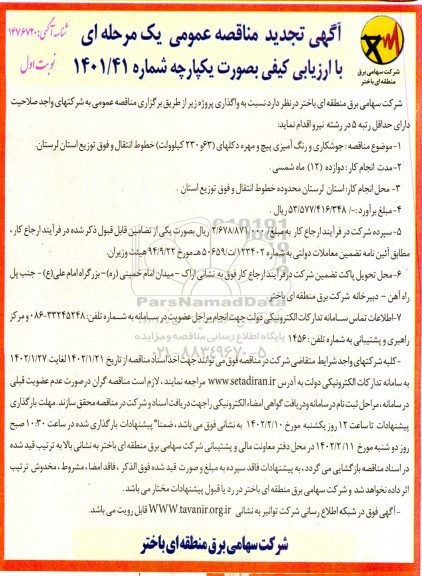 شناسه آگهی: ۱۴۷۶۷۲۰
نوبت اول
آگهی تجدید مناقصه عمومی یک مرحله ای
با ارزیابی کیفی بصورت یکپارچه شماره ۱۴۰۱/۴۱
شرکت سهامی برق
منطقه ای باختر
شرکت سهامی برق منطقه ای باختر در نظر دارد نسبت به واگذاری پروژه زیر از طریق برگزاری مناقصه عمومی به شرکتهای واجد صلاحیت
دارای حداقل رتبه ۵ در رشته نیرو اقدام نماید:
۱- موضوع مناقصه: جوشکاری و رنگ آمیزی پیچ و مهره دکلهای (۶۳و۲۳۰ کیلوولت) خطوط انتقال و فوق توزیع استان لرستان.
۲-مدت انجام کار: دوازده (۱۲) ماه شمسی.
۳- محل انجام کار: استان لرستان محدوده خطوط انتقال و فوق توزیع استان .
۴- مبلغ برآورد: -/۵۳/۵۷۷/۴۱۶/۳۴۸ ریال
۵- سپرده شرکت در فرآیند ارجاع کار به مبلغ ۲/۶۷۸/۸۷۱/۰۰۰ ریال بصورت یکی از تضامین قابل قبول ذکر شده در فرآیند ارجاع کار،
مطابق آئین نامه تضمین معاملات دولتی به شماره ۱۲۳۴۰۲/ت۵۰۶۵۹هـ مورخ ۹۴/۹/۲۲ هیئت وزیران.
۶- محل تحویل پاکت تضمین شرکت در فرآیند ارجاع کار فوق به نشانی اراک - میدان امام خمینی (ره)- بزرگراه امام علی(ع) - جنب پل
راه آهن - دبیرخانه شرکت برق منطقه ای باختر.
۷-اطلاعات تماس سامانه تدارکات الکترونیکی دولت جهت انجام مراحل عضویت در سامانه به شماره تلفن: ۳۳۲۴۵۲۴۸-۰۸۶ و مرکز
راهبری و پشتیبانی به شماره تلفن: ۱۴۵۶
- کلیه شرکتهای واجد شرایط متقاضی شرکت در مناقصه فوق می توانند جهت اخذ اسناد مناقصه از تاریخ ۱۴۰۲/۱/۲۱ لغایت ۱۴۰۲/۱/۲۷
به سامانه تدارکات الکترونیکی دولت به آدرس www.setadiran.ir مراجعه نمایند، لازم است مناقصه گران در صورت عدم عضویت قبلی
در سامانه، مراحل ثبت نام در سامانه و دریافت گواهی امضاء الکترونیکی را جهت دریافت اسناد و شرکت در مناقصه محقق سازند. مهلت بارگذاری
پیشنهادات تا ساعت ۱۲ روز یکشنبه مورخ ۱۴۰۲/۲/۱۰ به نشانی فوق می باشد، ضمنا" پیشنهادات بارگذاری شده در ساعت ۱۰:۳۰ صبح
روز دو شنبه مورخ ۱۴۰۲/۲/۱۱ در محل دفتر معاونت مالی و پشتیبانی شرکت سهامی برق منطقه ای باختر به نشانی بالا به ترتیب قید شده
در اسناد مناقصه بازگشایی می گردد، به پیشنهادات فاقد سپرده به مبلغ و صورت قید شده فوق الذکر، فاقد امضا، مشروط، مخدوش ترتیب
اثر داده نخواهد شد و شرکت سهامی برق منطقه ای باختر در رد یا قبول پیشنهادات مختار می باشد.
- آگهی فوق در شبکه اطلاع رسانی شرکت توانیر به نشانی WWW.tavanir.org.ir قابل رویت می باشد.
شرکت سهامی برق منطقه ای باختر
ParsNamadData
پایگاه اطلاع رسانی مناقصه و مزایده
۰۲۱-۸۸۳۴۹۶۷۰-۵